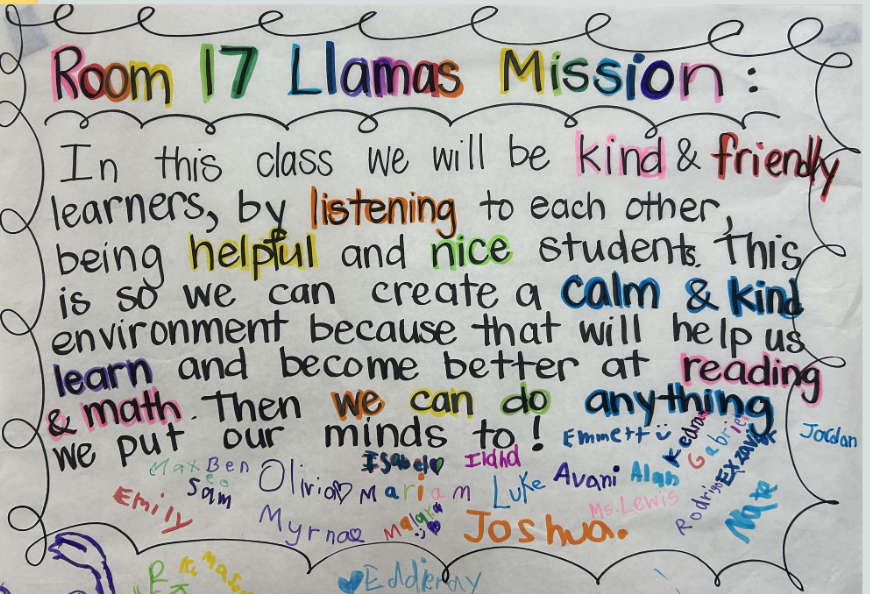 Room 17 Llamas Mission:
In this class we will be kind & friendly
learners, by listening to each other,
being helpful and nice students. This
is so we can create a calm & kind
environment because that will help us
learn and become better at reading
& math. Then we can do anything
we put our minds to!
Emmett
Jordan
Max Ben
Isabelo
Kedras
Sam
Olivia
Mariam
Luke
Avani
Alan
Exzavier
Emily
Ms. Lewis
Rodrigo
Nate
Myrna
Joshua.
Mason
Eddieray